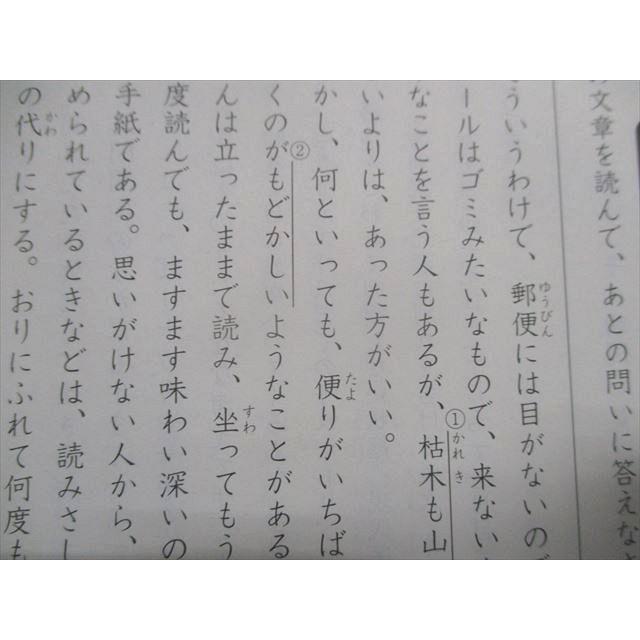 文章を読んで、あとの問いに答えな
ういうわけで、郵便には目がないの
ールはゴミみたいなもので、来ない
なことを言う人もあるが、枯木も山
いよりは、あった方がいい。
かし、何といっても、便りがいちば
くのがもどかしいようなことがある
んは立ったままで読み、坐ってもう
度読んでも、ますます味わい深いの
手紙である。思いがけない人から、
められているときなどは、読みさし
の代りにする。おりにふれて何度も